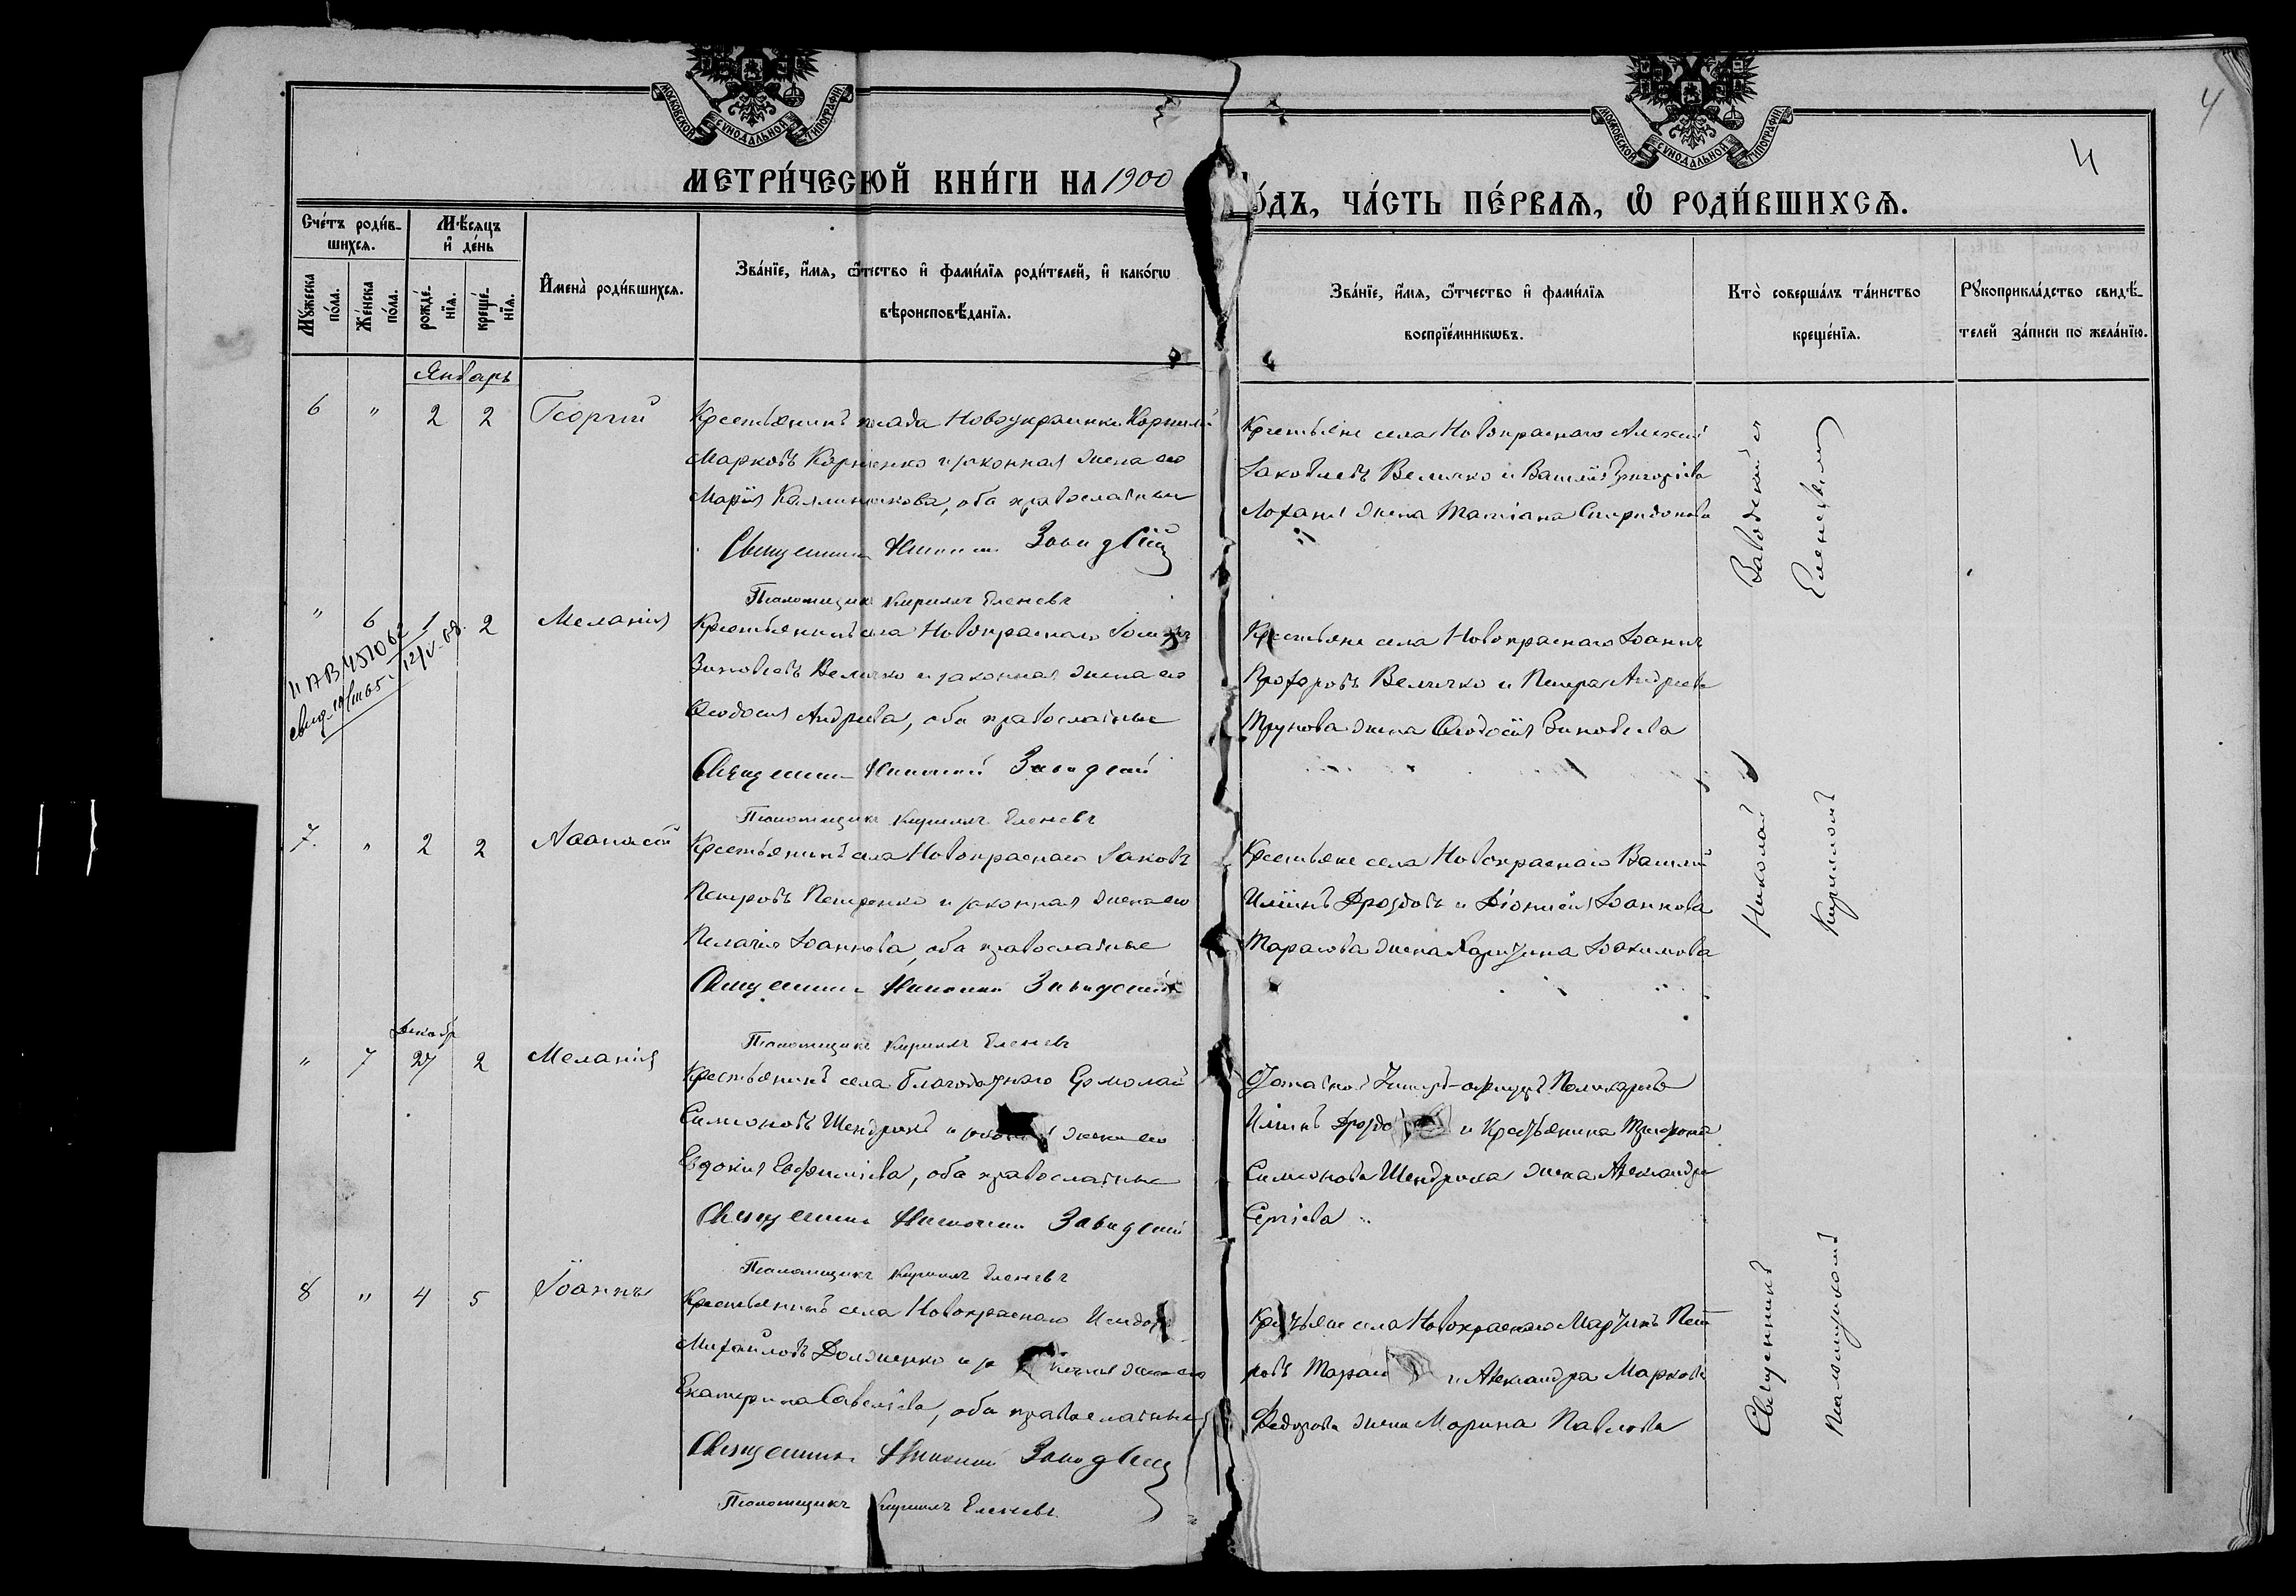 МОСКОВСКОЙ СѴНОДАЛЬНОЙ ТИПОГРАФІИ
МОСКОВСКОЙ СѴНОДАЛЬНОЙ ТИПОГРАФІИ
4
4
МЕТРИ́ЧЕСКОЙ КНИ́ГИ НА 1900
ГО́ДЪ, ЧА́СТЬ ПЕ́РВАѦ, Ѡ҆ РОДИ́ВШИХСѦ.
Сче́тъ роди́в-
шихсѧ.
Мꙋ́жеска по́ла.
Же́нска по́ла.
Мѣ́сѧцъ
и҆ де́нь
рожде́-
нїѧ.
креще́-
нїѧ.
И҆мена̀ роди́вшихсѧ.
Зва́нїе, и҆́мѧ, ѻ҆́тчество и҆ фами́лїѧ роди́телей, и҆ како́гѡ
вѣроисповѣ́данїѧ.
Зва́нїе, и҆́мѧ, ѻ҆́тчество и҆ фами́лїѧ
воспрїе́мникѡвъ.
Кто̀ соверша́лъ та́инство
креще́нїѧ.
Рꙋкоприкла́дство свидѣ́-
телей за́писи по жела́нїю.
Январь
6 " 2 2 Георгій
Крестьянинъ посада Новоукраинки Корнилій
Марковъ Корніенко и законная жена его
Марія Каллиникова, оба православные
Священникъ Николай Завадскій
Псаломщикъ Кириллъ Еленевъ
Крестьяне села Новокраснаго Алексій
Іаковлевъ Величко и Василія Григоріева
жена Татіана Спиридонова
" 6 1 2 Меланія
II АВ 451062
свид. 12/V-68.
Крестьянинъ села Новокраснаго
Зиновіевъ Величко и законная жена его
Ѳеодосія Андреева, оба православные
Священникъ Николай Завадскій
Псаломщикъ Кириллъ Еленевъ
Крестьяне села Новокраснаго Іоаннъ
Прохоровъ Величко и Петра Андреева
Трунова жена Ѳеодосія Зиновіева
7. " 2 2 Аѳанасій
Крестьянинъ села Новокраснаго Іаковъ
Петровъ Петренко и законная жена его
Пелагія Іоаннова, оба православные
Священникъ Николай Завадскій
Псаломщикъ Кириллъ Еленевъ
Крестьяне села Новокраснаго Василій
Иліинъ Дроздовъ и Діонисія Іоаннова
Тарасова жена Харитина Іоакимова
Декабр
" 7 27 2 Меланія
Крестьянинъ села Благодатнаго Ермолай
Симеоновъ Шендрикъ и жена его
Евдокія Евфиміева, оба православные
Священникъ Николай Завадскій
Псаломщикъ Кириллъ Еленевъ
Запасной Унтеръ-офицеръ Поликарпъ
Иліинъ и Крестьянина Трифона
Симеонова Шендрика жена Александра
Сергіева
8 " 4 5 Іоаннъ
Крестьянинъ села Новокраснаго Исидоръ
Михаиловъ Долженко и жена его
Екатерина Савеліева, оба православные
Священникъ Николай Завадскій
Псаломщикъ Кириллъ Еленевъ
Крестьяне села Новокраснаго Мартинъ Пет
ровъ и Александра Маркова
Федорова жена Марина Павлова
Священникъ Николай Заводскій и
Псаломщикомъ Кирилломъ Еленевымъ